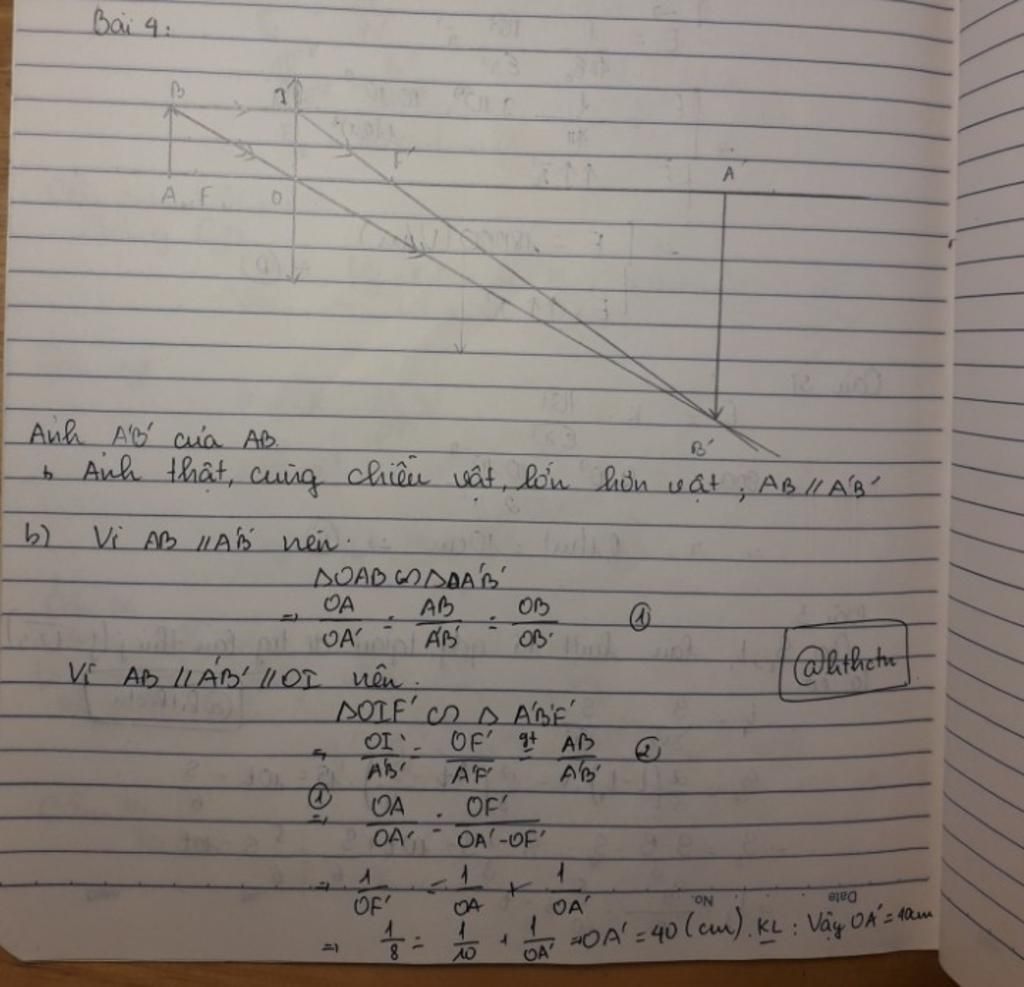 Bài 4:
B I
F' A'
A F O
B'
Ảnh A'B' của AB.
↳ Ảnh thật, cùng chiều vật, lớn hơn vật ; AB // A'B'
b) Vì AB // A'B' nên.
ΔOAB ∽ ΔOA'B'
⇒ OA/OA' = AB/A'B' = OB/OB' ①
@hthctn
Vì AB // A'B' // OI nên.
ΔOIF' ∽ Δ A'B'F'
⇒ OI/A'B' = OF'/A'F' gt= AB/A'B' ②
①⇒ OA/OA' = OF'/OA'-OF'
⇒ 1/OF' = 1/OA + 1/OA'
No. Date
⇒ 1/8 = 1/10 + 1/OA' ⇒ OA' = 40 (cm). KL : Vậy OA' = 40cm